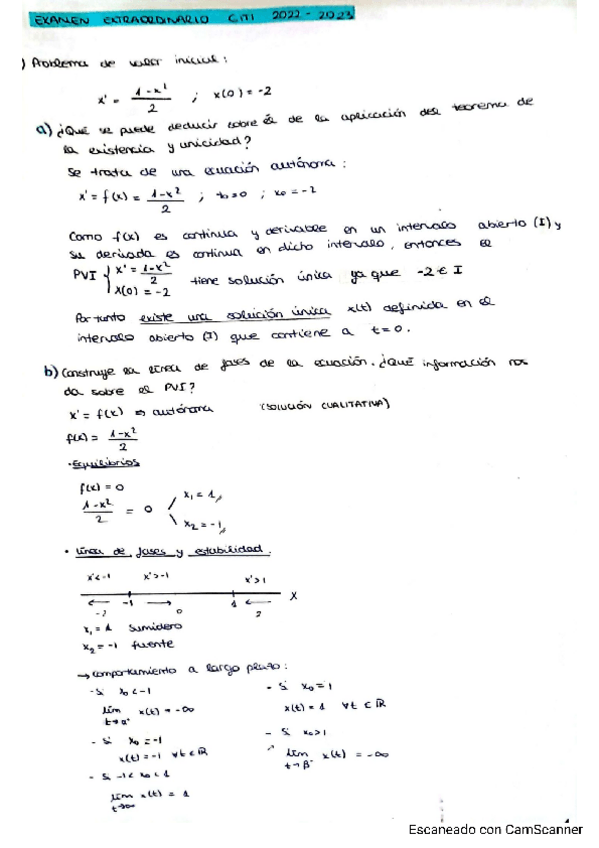 EXAMEN EXTRAORDINARIO CITI 2022-2023
) Problema de valor inicial:
x' = (1-x²)/2 ; x(0) = -2
a) ¿Qué se puede deducir sobre él de la aplicación del teorema de
la existencia y unicidad?
Se trata de una ecuación autónoma:
x' = f(x) = (1-x²)/2 ; t₀=0 ; x₀ = -2
Como f(x) es continua y derivable en un intervalo abierto (I) y
su derivada es continua en dicho intervalo, entonces el
PVI { x' = (1-x²)/2
x(0) = -2 tiene solución única ya que -2 ∈ I
Por tanto existe una solución única x(t) definida en el
intervalo abierto (I) que contiene a t=0.
b) Construye la línea de fases de la ecuación. ¿Qué información nos
da sobre el PVI?
x' = f(x) ⇒ autónoma (SOLUCIÓN CUALITATIVA)
f(x) = (1-x²)/2
· Equilibrios
f(x) = 0
(1-x²)/2 = 0 x₁ = 1,
x₂ = -1,
· Línea de fases y estabilidad.
x'<-1 x'>-1 x'>1
← -1 → 1 ← X
-2 0 2
x₁ = 1 sumidero
x₂ = -1 fuente
→ comportamiento a largo plazo:
- Si x₀ < -1
lím x(t) = -∞
t→β⁻
- Si x₀ = -1
x(t) = -1 ∀t ∈ ℝ
- Si -1 < x₀ < 1
lím x(t) = 1
t→∞
- Si x₀ = 1
x(t) = 1 ∀t ∈ ℝ
- Si x₀>1
lím x(t) = -∞
t→β⁻
Escaneado con CamScanner